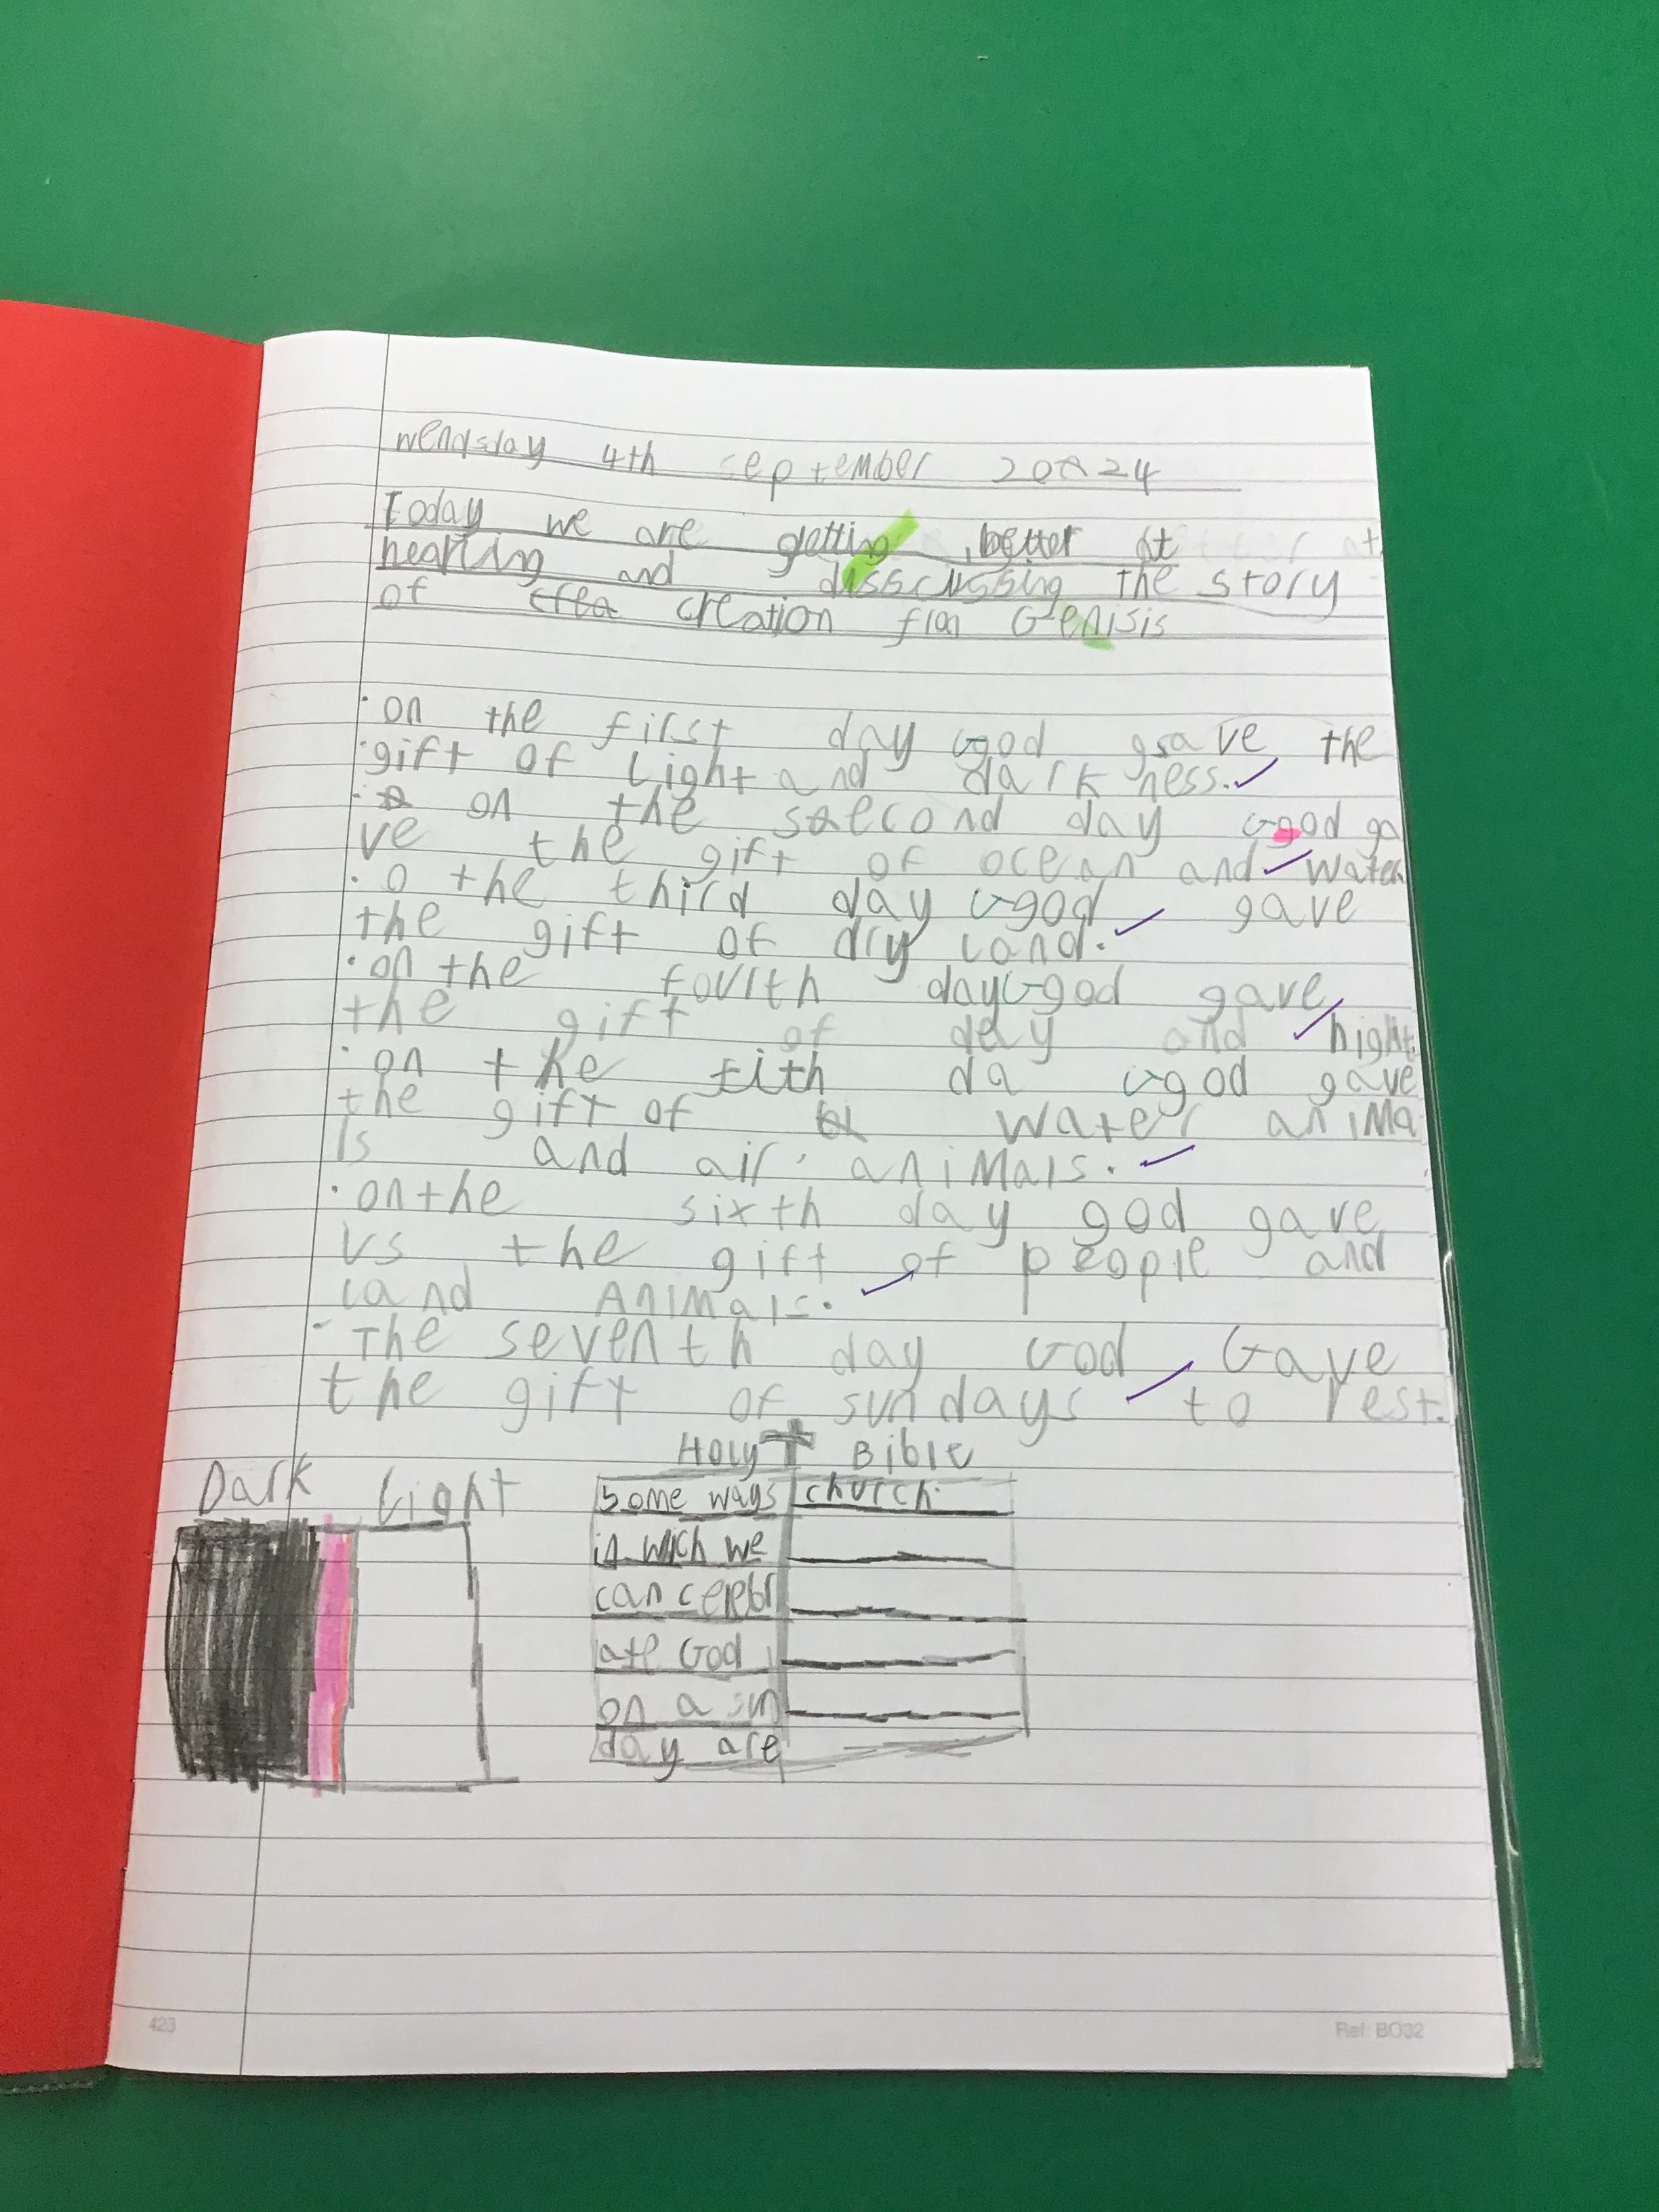 Wendsday 4th september 2024
Today we are getting better at
hearing and disscussing the story
of creation from Genisis
· on the first day God gave the
· gift of Light and dark ness.
· on the second day God ga
ve the gift of ocean and water
· o the third day God gave
the gift of dry land.
· on the fourth day God gave
the gift of day and night.
· on the fith da God gave
the gift of water anima
ls and air animals.
· on the sixth day god gave
us the gift of people and
land Animals.
· The seventh day God Gave
the gift of sundays to rest.
Holy Bible
Dark Light
some ways church.
in wich we
can celebr
ate God
on a sun
day are
423 Ref: BO32